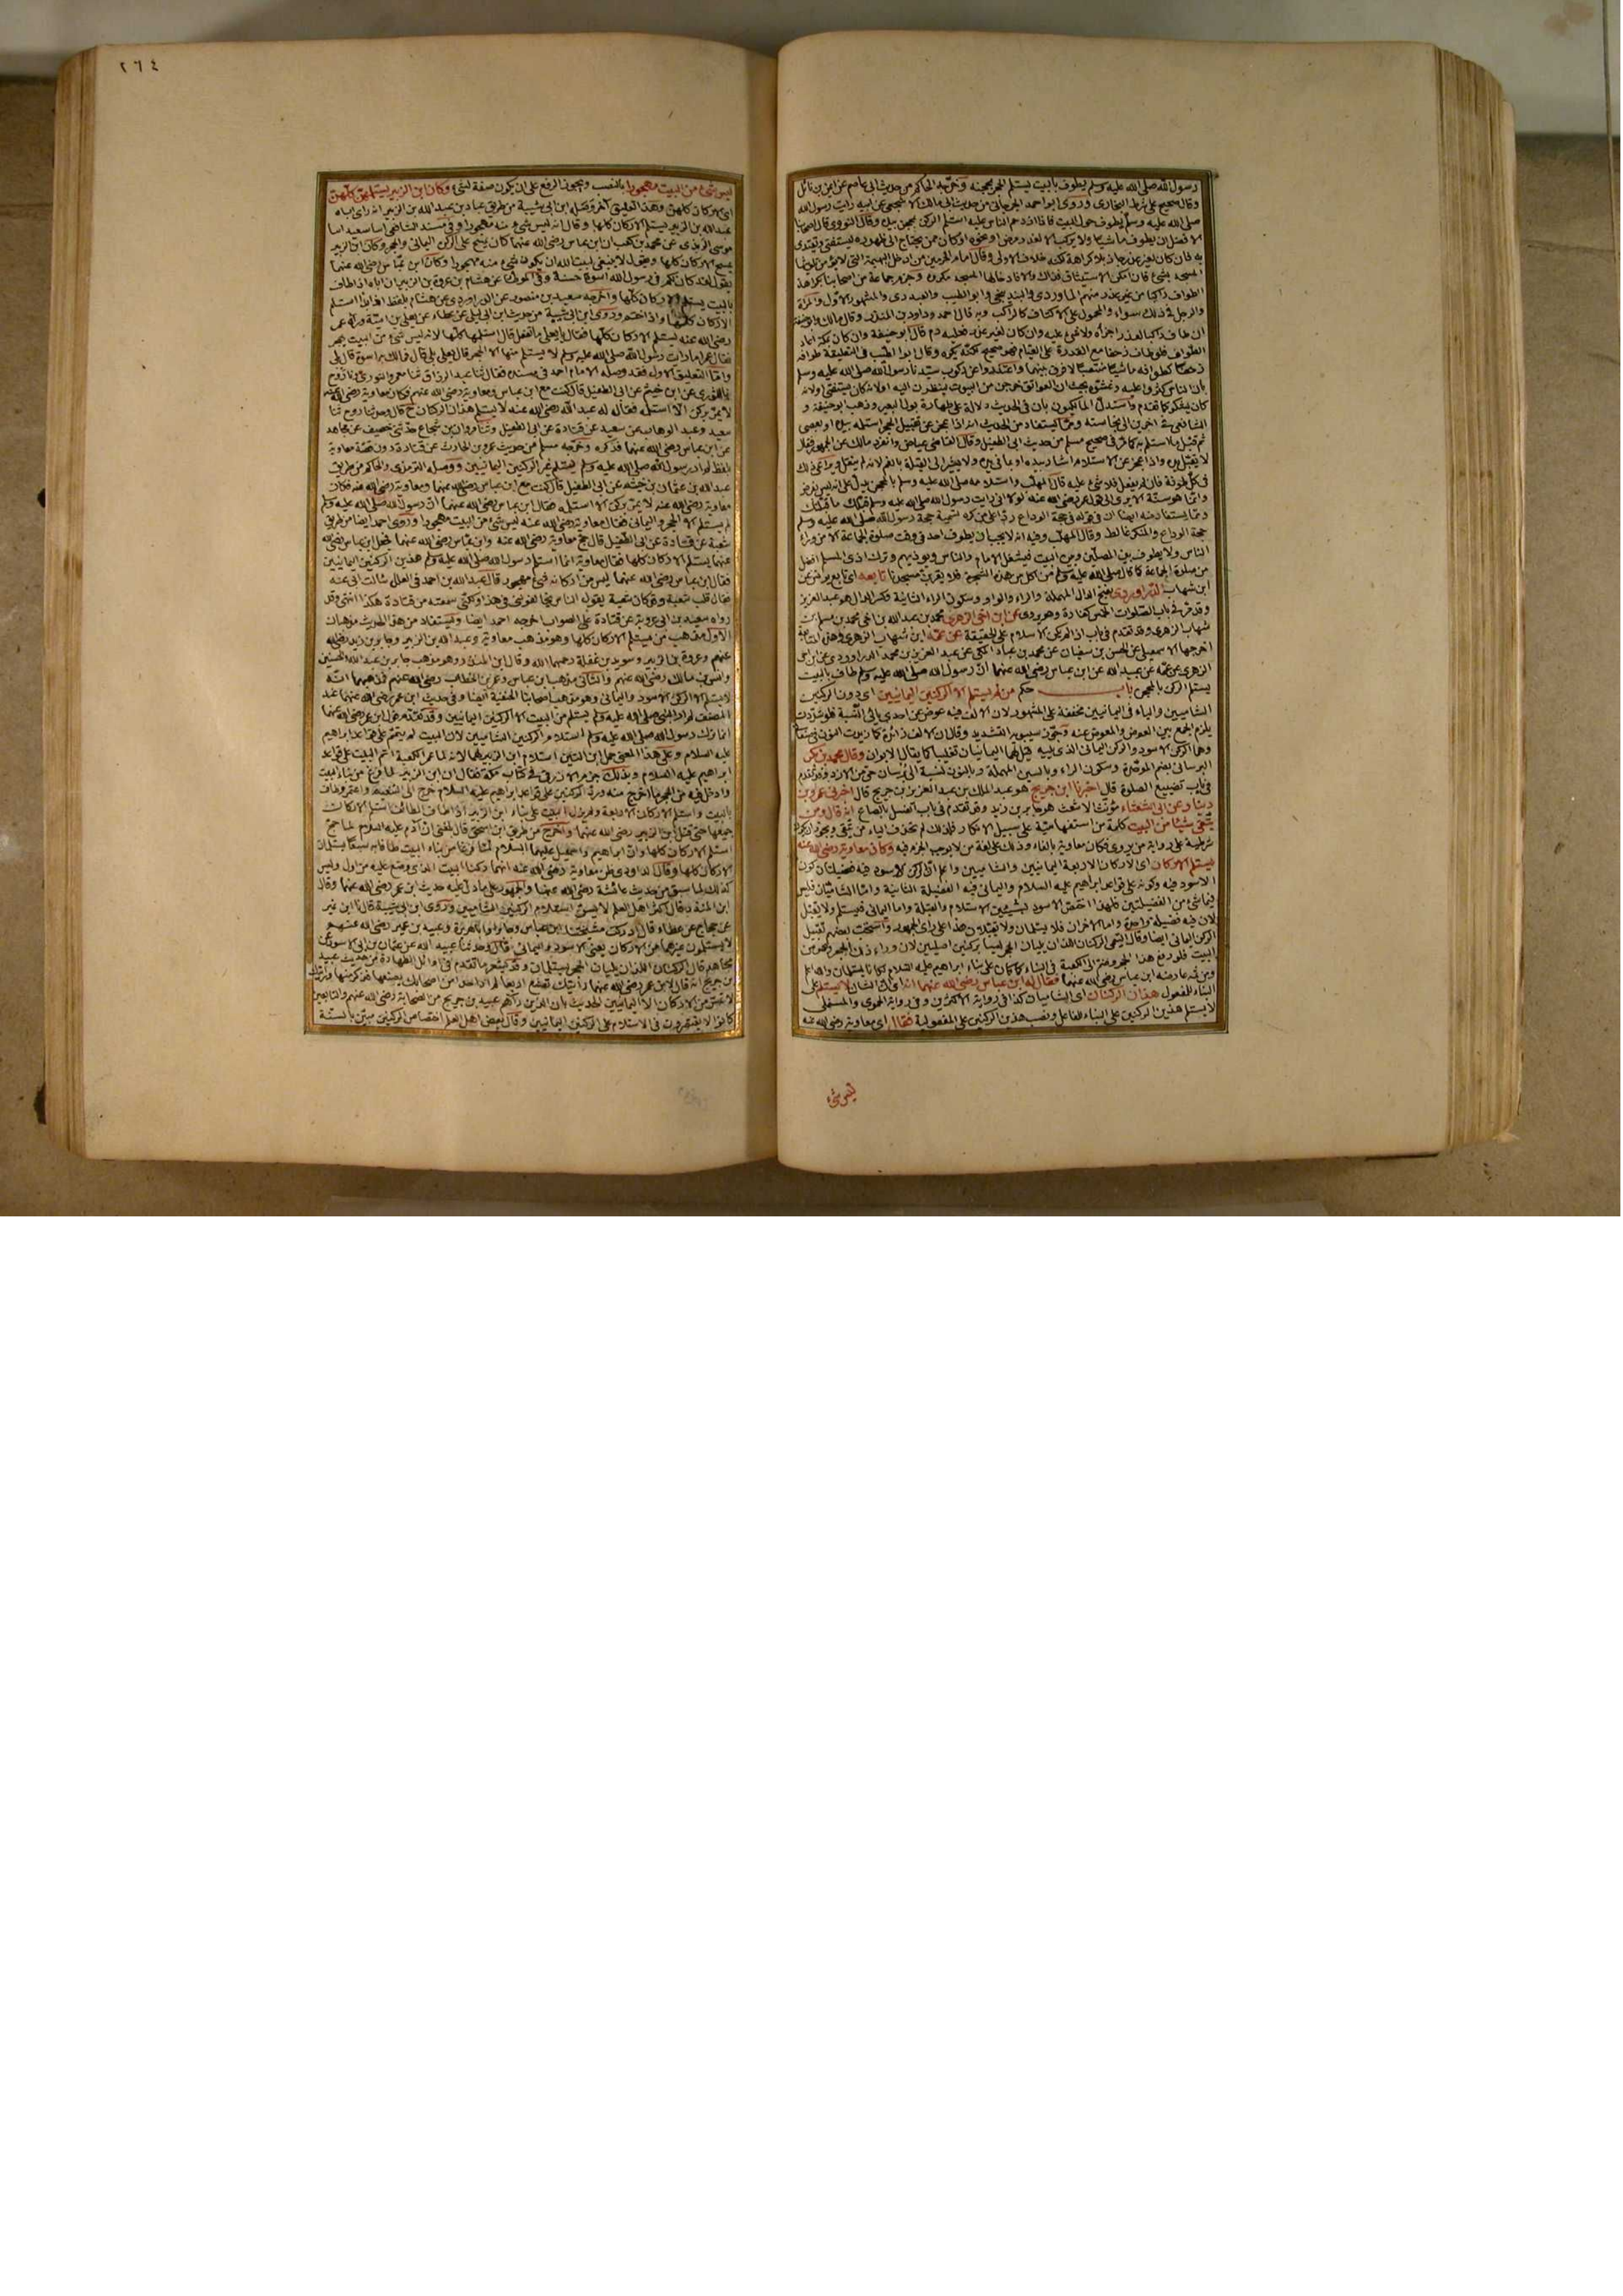 رسول الله صلى الله عليه وسلم يطوف بالبيت يستلم الحجر بمحجنه
وقال صحيح على شرط البخارى وروى ابو احمد الجرجانى من حديث ابى مالك الاشجعى عن ابيه رايت رسول الله
صلى الله عليه وسلم يطوف حول البيت فاذا ازدحم الناس عليه استلم الركن بمحجن بيده وقال النووى قال اصحابنا
الافضل ان يطوف ماشيا ولا يركب الا لعذر مرض او نحوه او كان ممن يحتاج الى ظهوره ليستفتى ويقتدى
به فان كان لغير عذر جاز بلا كراهة لكنه خلاف الاولى وقال امام الحرمين من ادخل البهيمة التى لا يؤمن تلويثها
المسجد بشئ فان امكن الاستيثاق فذاك والا فادخالها المسجد مكروه وجزم جماعة من اصحابنا بكراهة
الطواف راكبا من غير عذر منهم الماوردى والبندنيجى وابو الطيب والعبدرى والمشهور الاول والمرأة
والرجل فى ذلك سواء والمحمول على الاكتاف كالراكب وبه قال احمد وداود بن المنذر وقال مالك وابو حنيفة
ان طاف راكبا لعذر اجزأه ولا شئ عليه وان كان لغير عذر فعليه دم قال ابو حنيفة وان كان بمكة اعاد
الطواف فلو طاف زحفا مع القدرة على القيام فهو صحيح لكنه يكره وقال ابو الطيب فى التعليقة طوافه
زحفا كطوافه ماشيا منتصبا لا فرق بينهما واعتذروا عن ركوب سيدنا رسول الله صلى الله عليه وسلم
بأن الناس كثروا عليه وغشوه بحيث ان العواتق خرجن من البيوت لينظرن اليه او لانه كان يستفتى او لانه
كان يشكو كما تقدم واستدل المالكيون بأن فى الحديث دلالة على طهارة بول البعير وذهب ابو حنيفة و
الشافعى فى اخرين الى نجاسته ومما يستفاد من الحديث انه اذا عجز عن تقبيل الحجر استلمه بيده او بعصى
ثم قبل ما استلم به كما مر فى صحيح مسلم من حديث ابى الطفيل وقال القاضى عياض وانفرد مالك عن الجمهور فقال
لا يقبل يده واذا عجز عن الاستلام اشار بيده او بما فى يده ولا يشير الى القبلة بالفم لانه لم ينقل
فى كل طوفة فان لم يفعل فلا شئ عليه قال المهلب واستلامه صلى الله عليه وسلم بالمحجن يدل على انه ليس بفرض
وانما هو سنة الا يرى الى قول عمر رضى الله عنه لولا انى رايت رسول الله صلى الله عليه وسلم قبلك ما قبلتك
ومما يستفاد منه ايضا ان فى قوله فى حجة الوداع ردا على من كره تسمية حجة رسول الله صلى الله عليه وسلم
حجة الوداع والمنكر غالط وقال المهلب وفيه انه لا يجب ان يطوف احد فى وقت صلوة الجماعة الا من وراء
الناس ولا يطوف بين المصلين وبين البيت فيشغل الامام والناس ويوذيهم وترك اذى المسلم افضل
من صلوة الجماعة كما قال صلى الله عليه وسلم من اكل من هذه الشجرة فلا يقربن مسجدنا تابعه اى تابع يونس عن
ابن شهاب الدراوردى بفتح الدال المهملة والراء والواو وسكون الراء الثانية وكسر الدال هو عبد العزيز
وقد مر فى باب الصلوات الخمس كفارة وهو يروى عن ابن اخى الزهرى محمد بن عبد الله بن اخى محمد بن مسلم بن
شهاب الزهرى وقد تقدم فى باب اذا لم يكن الاسلام على الحقيقة عن عمه ابن شهاب الزهرى وهذه المتابعة
اخرجها الاسمعيلى عن الحسن بن سفيان عن محمد بن عباد المكى عن عبد العزيز بن محمد الدراوردى عن ابن اخى
الزهرى عن عمه عن عبيد الله عن ابن عباس رضى الله عنهما ان رسول الله صلى الله عليه وسلم طاف بالبيت
يستلم الركن بالمحجن باب حكم من لم يستلم الا الركنين اليمانيين اى دون الركنين
الشاميين والياء فى اليمانيين مخففة على المشهور لان الالف فيه عوض عن احدى يائى النسبة فلو شددت
يلزم الجمع بين العوض والمعوض عنه وجوز سيبويه التشديد وقال ان الالف زائدة كما زيدت النون فى صنعانى
وهما الركن الاسود والركن اليمانى الذى يليه قيل لهما اليمانيان تغليبا كما يقال الابوان وقال محمد بن بكر
البرسانى بضم الموحدة وسكون الراء وبالسين المهملة وبالنون نسبة الى برسان حى من الازد وقد تقدم
فى باب تضييع الصلوة قال اخبرنا ابن جريج هو عبد الملك بن عبد العزيز بن جريج قال اخبرنى عمرو بن
دينار عن ابى الشعثاء مؤنث الاشعث هو جابر بن زيد وقد تقدم فى باب الغسل بالصاع انه قال ومن
يتقى شيئا من البيت كلمة من استفهامية على سبيل الانكار فلذلك لم تحذف الياء من يتقى ويجوز ان تكون
شرطية على رواية من يروى فكان معاوية بالفاء وذلك على لغة من لا يوجب الجزم فيه وكان معاوية رضى الله عنه
يستلم الاركان اى الاركان الاربعة اليمانيين والشاميين واعلم ان الركن الاسود فيه فضيلتان كون
الاسود فيه وكونه على قواعد ابراهيم عليه السلام واليمانى فيه الفضيلة الثانية واما الشاميان فليس
فيهما شئ من الفضيلتين فلهذا اختص الاسود بشيئين الاستلام والقبلة واما اليمانى فيستلم ولا يقبل
لان فيه فضيلة واحدة واما الاخران فلا يستلمان ولا يقبلان هذا على راى الجمهور واستحب بعضهم تقبيل
الركن اليمانى ايضا وقال التيمى الركنان اللذان يليان الحجر ليسا بركنين اصليين لان وراء ذلك الحجر وهو من
البيت فلو رفع هذا الحجر وضم الى الكعبة فى البناء كما كان على بناء ابراهيم عليه السلام كانا يستلمان والله اعلم
ومن ثمه عارضه ابن عباس رضى الله عنهما فقال له ابن عباس رضى الله عنهما انه اى ان الشان لا يستلم على
البناء للمفعول هذان الركنان اى الشاميان كذا فى رواية الاكثرين وفى رواية الحموى والمستملى
لا يستلم هذين الركنين على البناء للفاعل ونصب هذين الركنين على المفعولية فقال اى معاوية رضى الله عنه
ليس شئ
٢٦٤
ليس شئ من البيت مهجورا بالنصب ويجوز الرفع على ان يكون صفة لشئ وكان ابن الزبير يستلمهن كلهن
اى الاركان كلهن وهذا التعليق اخر وصله ابن ابى شيبة من طريق عباد بن عبد الله بن الزبير انه راى اباه
عبد الله بن الزبير يستلم الاركان كلها وقال انه ليس شئ منه مهجورا وفى مسند الشافعى
موسى الربذى عن محمد بن كعب ان ابن عباس رضى الله عنهما كان يمسح على الركن اليمانى والحجر وكان ابن الزبير
يمسح الاركان كلها ويقول لا ينبغى لبيت الله ان يكون شئ منه مهجورا وكان ابن عباس رضى الله عنهما
يقول لقد كان لكم فى رسول الله اسوة حسنة وفى الموطا عن هشام بن عروة بن الزبير ان اباه اذا طاف
بالبيت يستلم الاركان كلها واخرجه سعيد بن منصور عن الدراوردى عن هشام بلفظ اذا بدأ استلم
الاركان كلها واذا ختم وروى ابن ابى شيبة من حديث ابن ابى ليلى عن عطاء عن يعلى بن امية ورآه عمر
رضى الله عنه يستلم الاركان كلها فقال يا يعلى ما تفعل قال استلمها كلها لانه ليس شئ من البيت يهجر
فقال عمر اما رايت رسول الله صلى الله عليه وسلم لا يستلم منها الا الحجر قال يعلى بلى قال فما لك به اسوة قال بلى
واما التعليق الاول فقد وصله الامام احمد فى مسنده فقال ثنا عبد الرزاق ثنا معمر والثورى وثنا روح
عن ابن خيثم عن ابى الطفيل قال كنت مع ابن عباس ومعاوية رضى الله عنهم فكان معاوية رضى الله عنه
لا يمر بركن الا استلمه فقال له عبد الله رضى الله عنه لا يستلم هذان الركنان ح قال وحدثنا روح ثنا
سعيد وعبد الوهاب عن سعيد عن قتادة عن ابى الطفيل وثنا مروان بن شجاع حدثنى خصيف عن مجاهد
عن ابن عباس رضى الله عنهما فذكره وخرجه مسلم من حديث عمرو بن الحارث عن قتادة دون قصة معاوية
بلفظ لم ار رسول الله صلى الله عليه وسلم يستلم غير الركنين اليمانيين ووصله الترمذى والحاكم من طريق
عبد الله بن عثمان بن خيثم عن ابى الطفيل قال كنت مع ابن عباس رضى الله عنهما ومعاوية رضى الله عنه فكان
معاوية رضى الله عنه لا يمر بركن الا استلمه فقال ابن عباس رضى الله عنهما ان رسول الله صلى الله عليه وسلم
لم يستلم الا الحجر واليمانى فقال معاوية رضى الله عنه ليس شئ من البيت مهجورا وروى احمد ايضا من طريق
شعبة عن قتادة عن ابى الطفيل قال حج معاوية رضى الله عنه وابن عباس رضى الله عنهما فجعل ابن عباس رضى الله
عنهما يستلم الاركان كلها فقال معاوية انما استلم رسول الله صلى الله عليه وسلم هذين الركنين اليمانيين
فقال ابن عباس رضى الله عنهما ليس من اركانه شئ مهجور قال عبد الله بن احمد فى العلل سالت ابى عنه
فقال قلب شعبة وقد كان شعبة يقول الناس يخالفوننى فى هذا ولكنى سمعته من قتادة هكذا انتهى وقد
رواه سعيد بن ابى عروبة عن قتادة على الصواب اخرجه احمد ايضا ويستفاد من هذا الحديث مذهبان
الاول مذهب من يستلم الاركان كلها وهو مذهب معاوية وعبد الله بن الزبير وجابر بن زيد رضى الله
عنهم وعروة بن الزبير وسويد بن غفلة رحمهما الله وقال ابن المنذر وهو مذهب جابر بن عبد الله والحسنين
وانس بن مالك رضى الله عنهم والثانى مذهب ابن عباس وعمر بن الخطاب رضى الله عنهم فمذهبهما انه
لا يستلم الا الركن الاسود واليمانى وهو مذهب اصحابنا الحنفية ايضا وفى حديث ابن عمر رضى الله عنهما عند
المصنف لم ار النبى صلى الله عليه وسلم يستلم من البيت الا الركنين اليمانيين وقد تقدم قول ابن عمر رضى الله عنهما
انما ترك رسول الله صلى الله عليه وسلم استلام الركنين الشاميين لان البيت لم يتمم على قواعد ابراهيم
عليه السلام وعلى هذا المعنى حمل ابن التين استلام ابن الزبير لهما لانه لما عمر الكعبة اتم البيت على قواعد
ابراهيم عليه السلام وبذلك جزم الازرقى فى كتاب مكة فقال ان ابن الزبير لما فرغ من بناء البيت
وادخل فيه من الحجر ما اخرج منه ورد الركنين على قواعد ابراهيم عليه السلام خرج الى التنعيم واعتمر وطاف
بالبيت واستلم الاركان الاربعة ولم يزل البيت على بناء ابن الزبير اذا طاف الطائف استلم الاركان
جميعها حتى قتل ابن الزبير رضى الله عنهما واخرج من طريق ابن اسحق قال بلغنى ان آدم عليه السلام لما حج
استلم الاركان كلها وان ابراهيم واسمعيل عليهما السلام لما فرغا من بناء البيت طافا به سبعا يستلمان
الاركان كلها وقال الداودى ظن معاوية رضى الله عنه انهما ركنا البيت الذى وضع عليه من اول وليس
كذلك لما سبق من حديث عائشة رضى الله عنها والجمهور على ما دل عليه حديث ابن عمر رضى الله عنهما وقال
ابن المنذر قال اكثر اهل العلم لا يسن استلام الركنين الشاميين وروى ابن ابى شيبة قال ثنا ابن نمير
عن حجاج عن عطاء قال ادركت مشيختنا ابن عباس وجابرا وابا هريرة وعبيد بن عمير رضى الله عنهم
لا يستلمون غيرهما من الاركان يعنى الاسود واليمانى قال وحدثنا عبيد الله عن عثمان بن ابى الاسود عن
مجاهد قال الركنان اللذان يليان الحجر لا يستلمان وقد يشعر ما تقدم فى اوائل الطهارة من حديث عبيد
بن جريج انه قال لابن عمر رضى الله عنهما رأيتك تصنع اربعا لم ار احدا من اصحابك يصنعها فذكر منها ورأيتك
لا تمس من الاركان الا اليمانيين الحديث بان الذين رآهم عبيد بن جريج من الصحابة رضى الله عنهم والتابعين
كانوا لا يقتصرون فى الاستلام على الركنين اليمانيين وقال بعض اهل العلم اختصاص الركنين مبين بالسنة